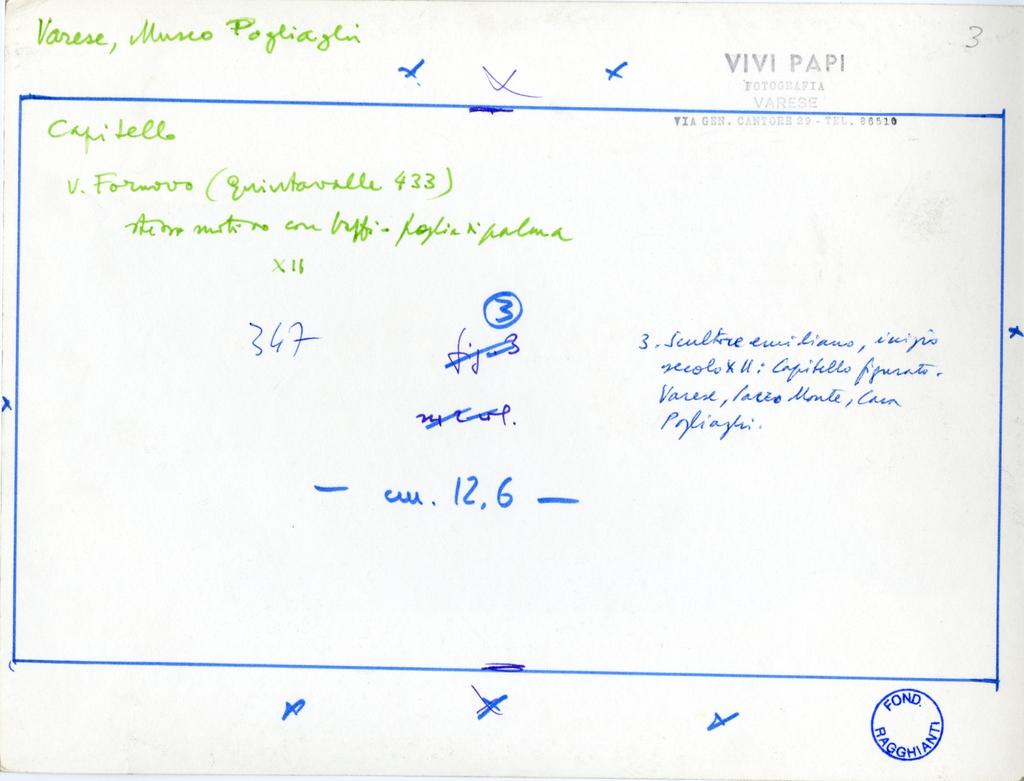 Varese, Museo Pogliaghi
3
VIVI PAPI
FOTOGRAFIA
VARESE
VIA GEN. CANTORE 29 - TEL. 86510
Capitello
v. Fornovo (Quintavalle 433)
stesso motivo con baffi - foglia di palma
XII
3
347
fig. 3
3. Scultore emiliano, inizio
secolo XII: Capitello figurato.
Varese, Sacro Monte, Casa
Pogliaghi.
— cm. 12,6 —
FOND. RAGGHIANTI